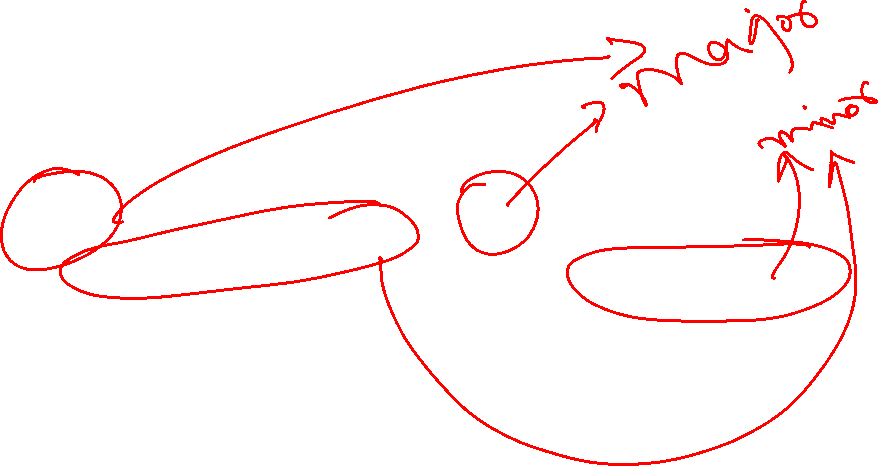 major
minor